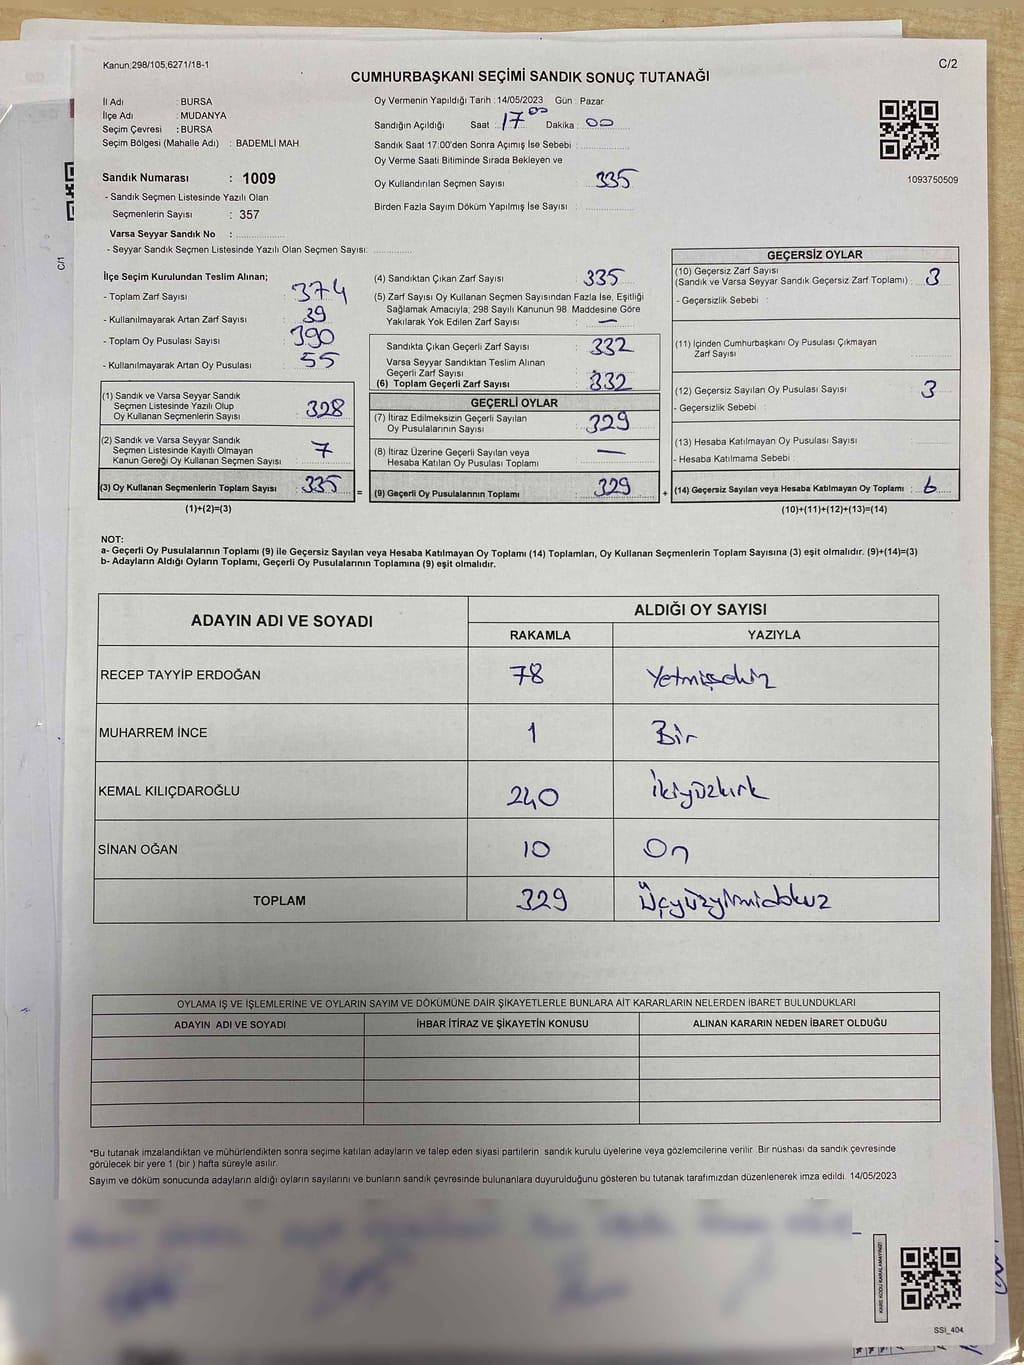 Kanun;298/105,6271/18-1
C/2
CUMHURBAŞKANI SEÇİMİ SANDIK SONUÇ TUTANAĞI
İl Adı : BURSA
İlçe Adı : MUDANYA
Seçim Çevresi : BURSA
Seçim Bölgesi (Mahalle Adı) : BADEMLİ MAH
Sandık Numarası : 1009
- Sandık Seçmen Listesinde Yazılı Olan
Seçmenlerin Sayısı : 357
Varsa Seyyar Sandık No :
- Seyyar Sandık Seçmen Listesinde Yazılı Olan Seçmen Sayısı:
Oy Vermenin Yapıldığı Tarih : 14/05/2023 Gün : Pazar
Sandığın Açıldığı Saat : 17 00 Dakika : 00
Sandık Saat 17:00'den Sonra Açımış İse Sebebi :
Oy Verme Saati Bitiminde Sırada Bekleyen ve
Oy Kullandırılan Seçmen Sayısı : 335
Birden Fazla Sayım Döküm Yapılmış İse Sayısı :
1093750509
C/1
İlçe Seçim Kurulundan Teslim Alınan;
- Toplam Zarf Sayısı : 374
- Kullanılmayarak Artan Zarf Sayısı : 39
- Toplam Oy Pusulası Sayısı : 390
- Kullanılmayarak Artan Oy Pusulası : 55
(1) Sandık ve Varsa Seyyar Sandık
Seçmen Listesinde Yazılı Olup
Oy Kullanan Seçmenlerin Sayısı : 328
(2) Sandık ve Varsa Seyyar Sandık
Seçmen Listesinde Kayıtlı Olmayan
Kanun Gereği Oy Kullanan Seçmen Sayısı : 7
(3) Oy Kullanan Seçmenlerin Toplam Sayısı : 335
(1)+(2)=(3)
(4) Sandıktan Çıkan Zarf Sayısı : 335
(5) Zarf Sayısı Oy Kullanan Seçmen Sayısından Fazla İse, Eşitliği
Sağlamak Amacıyla; 298 Sayılı Kanunun 98 Maddesine Göre
Yakılarak Yok Edilen Zarf Sayısı : —
Sandıkta Çıkan Geçerli Zarf Sayısı : 332
Varsa Seyyar Sandıktan Teslim Alınan
Geçerli Zarf Sayısı :
(6) Toplam Geçerli Zarf Sayısı : 332
GEÇERLİ OYLAR
(7) İtiraz Edilmeksizin Geçerli Sayılan
Oy Pusulalarının Sayısı : 329
(8) İtiraz Üzerine Geçerli Sayılan veya
Hesaba Katılan Oy Pusulası Toplamı : —
= (9) Geçerli Oy Pusulalarının Toplamı : 329 +
GEÇERSİZ OYLAR
(10) Geçersiz Zarf Sayısı
(Sandık ve Varsa Seyyar Sandık Geçersiz Zarf Toplamı) : 3
- Geçersizlik Sebebi :
(11) İçinden Cumhurbaşkanı Oy Pusulası Çıkmayan
Zarf Sayısı :
(12) Geçersiz Sayılan Oy Pusulası Sayısı : 3
- Geçersizlik Sebebi :
(13) Hesaba Katılmayan Oy Pusulası Sayısı :
- Hesaba Katılmama Sebebi :
(14) Geçersiz Sayılan veya Hesaba Katılmayan Oy Toplamı : 6
(10)+(11)+(12)+(13)=(14)
NOT:
a- Geçerli Oy Pusulalarının Toplamı (9) ile Geçersiz Sayılan veya Hesaba Katılmayan Oy Toplamı (14) Toplamları, Oy Kullanan Seçmenlerin Toplam Sayısına (3) eşit olmalıdır. (9)+(14)=(3)
b- Adayların Aldığı Oyların Toplamı, Geçerli Oy Pusulalarının Toplamına (9) eşit olmalıdır.
ADAYIN ADI VE SOYADI ALDIĞI OY SAYISI
RAKAMLA YAZIYLA
RECEP TAYYİP ERDOĞAN 78 Yetmişsekiz
MUHARREM İNCE 1 Bir
KEMAL KILIÇDAROĞLU 240 İkiyüzkırk
SİNAN OĞAN 10 On
TOPLAM 329 Üçyüzyirmidokuz
OYLAMA İŞ VE İŞLEMLERİNE VE OYLARIN SAYIM VE DÖKÜMÜNE DAİR ŞİKAYETLERLE BUNLARA AİT KARARLARIN NELERDEN İBARET BULUNDUKLARI
ADAYIN ADI VE SOYADI İHBAR İTİRAZ VE ŞİKAYETİN KONUSU ALINAN KARARIN NEDEN İBARET OLDUĞU
*Bu tutanak imzalandıktan ve mühürlendikten sonra seçime katılan adayların ve talep eden siyasi partilerin sandık kurulu üyelerine veya gözlemcilerine verilir. Bir nüshası da sandık çevresinde
görülecek bir yere 1 (bir ) hafta süreyle asılır.
Sayım ve döküm sonucunda adayların aldığı oyların sayılarını ve bunların sandık çevresinde bulunanlara duyurulduğunu gösteren bu tutanak tarafımızdan düzenlenerek imza edildi. 14/05/2023
KARE KODU KARALAMAYINIZ!
SSI_404